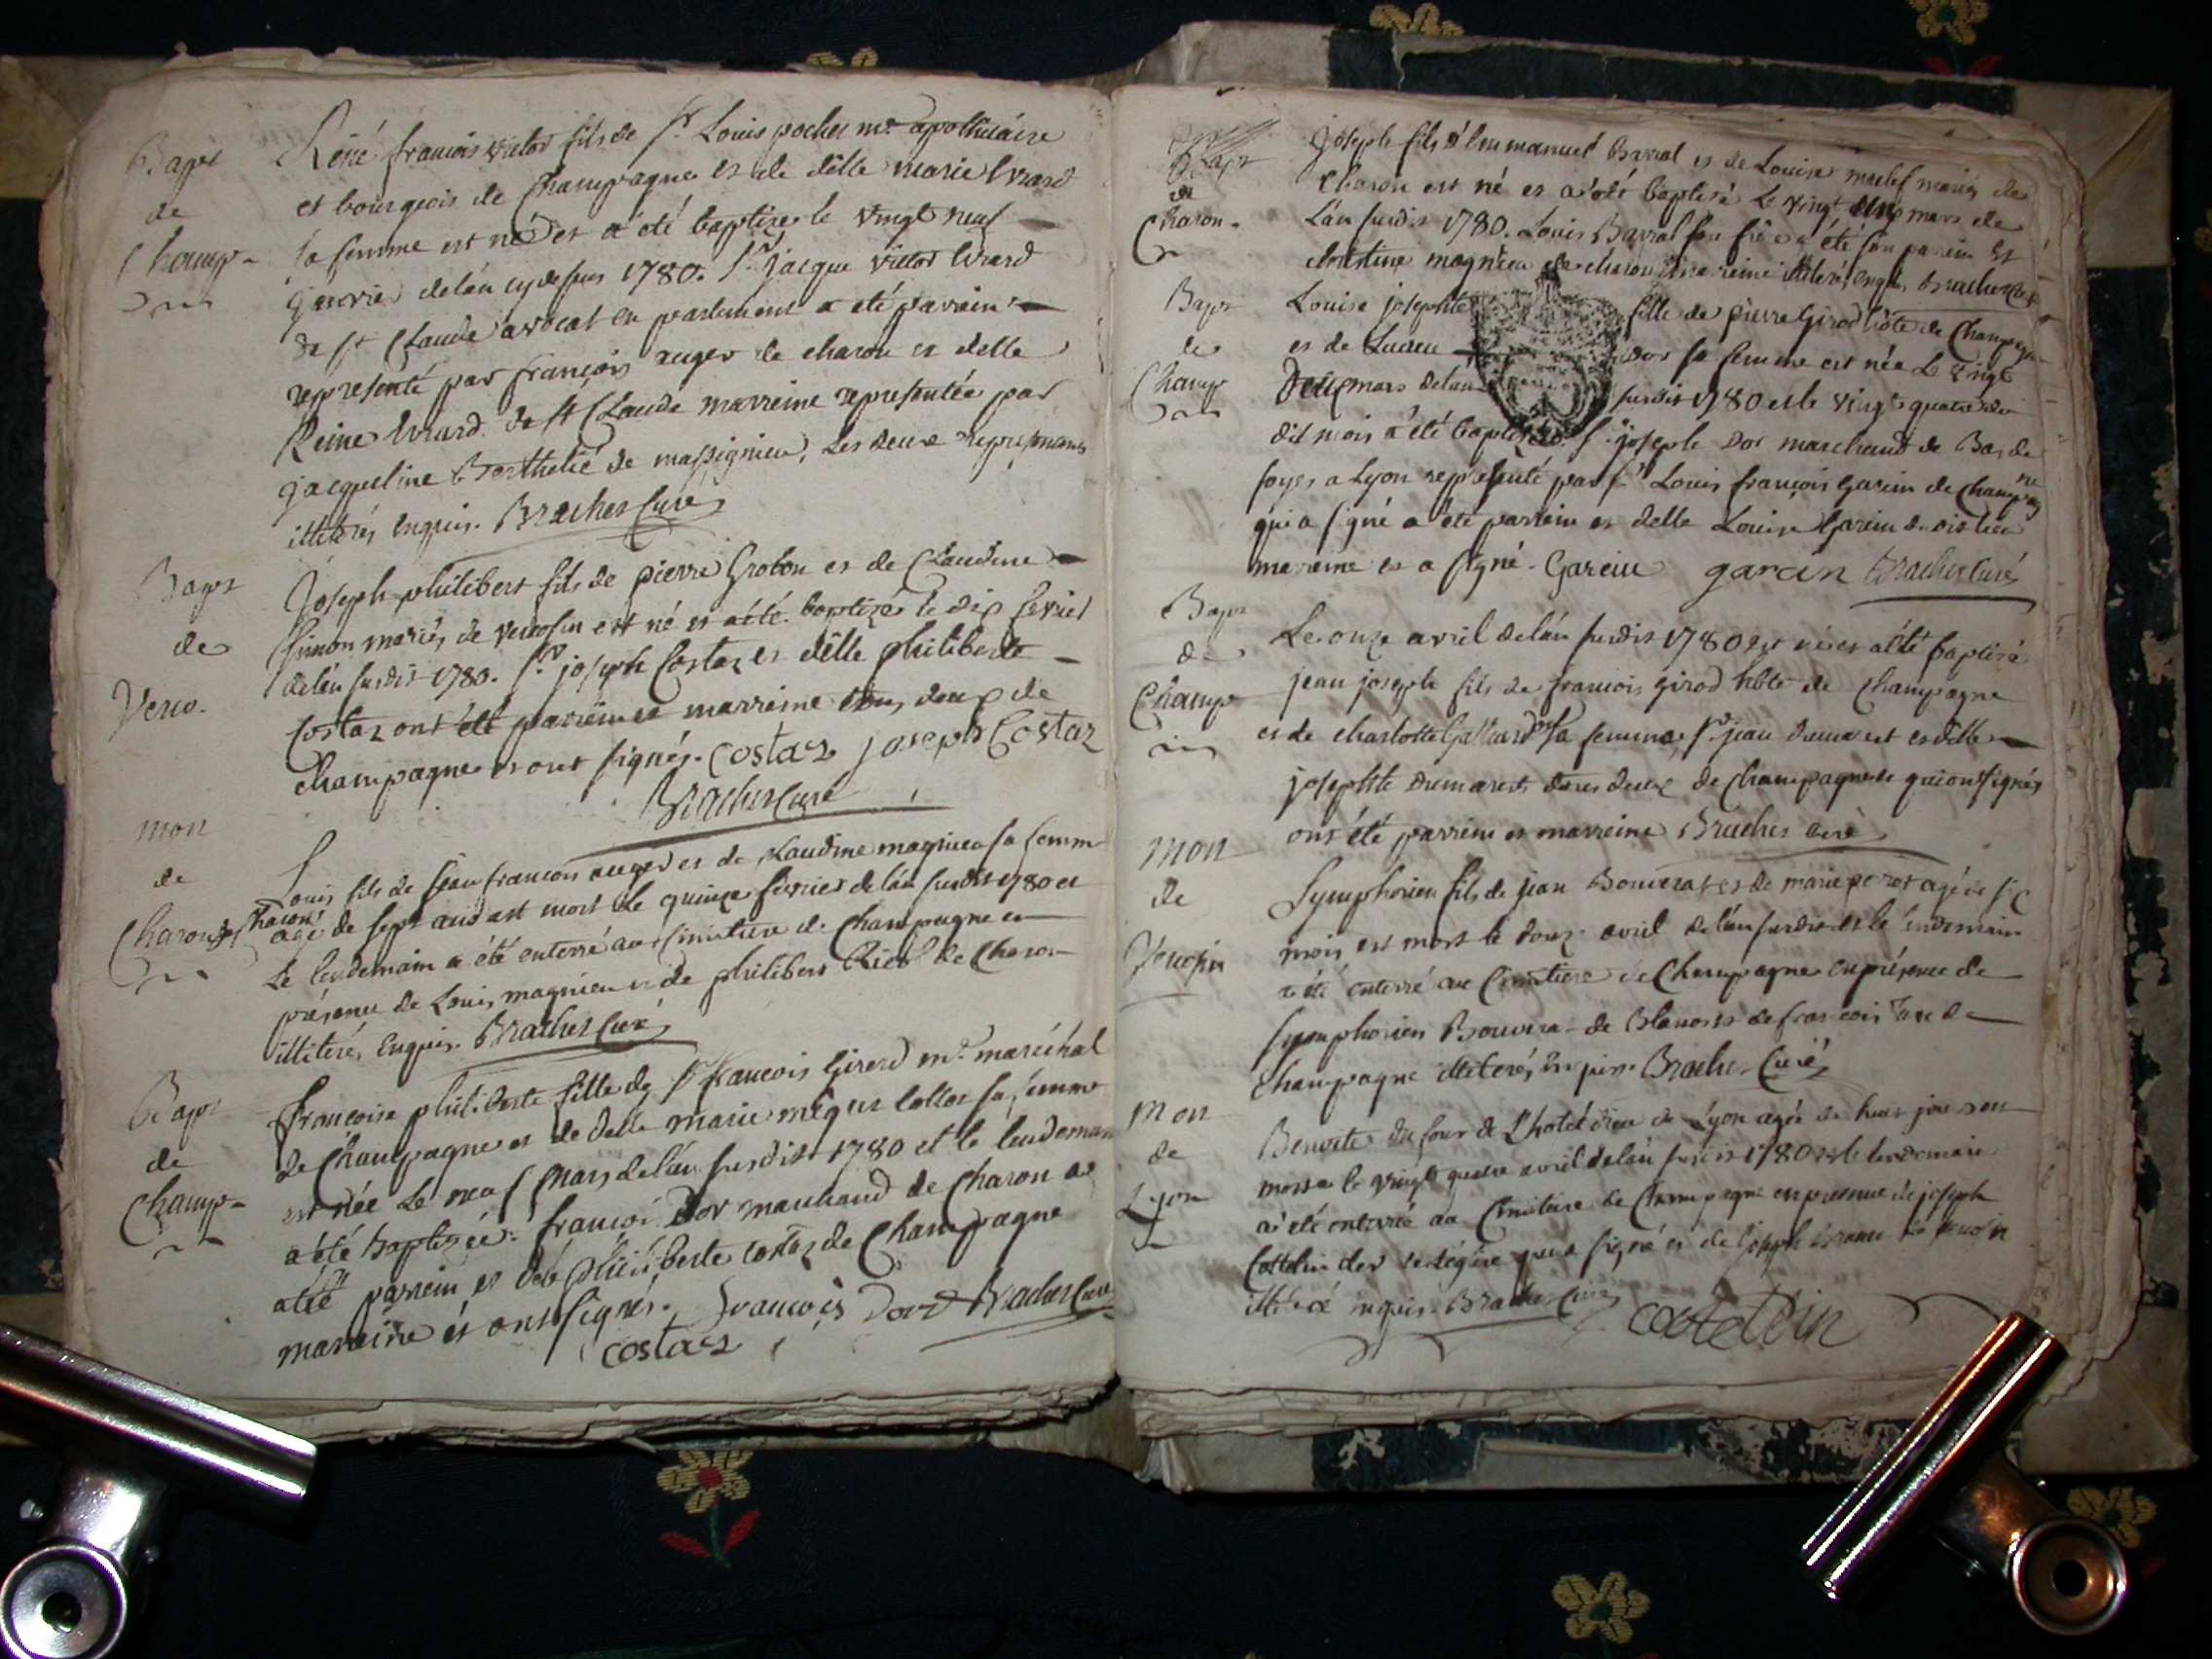 Bapt
de
Champ
René françois victor fils de Sr Louis pochet me apothicaire
et bourgeois de Champagne et de délle marie
sa femme est né et a été baptisé le vingt neuf
janvier de lan cy dessus 1780. Sr jacque victor
de St Claude avocat en parlement a été parrain
representé par françois auger de charon et delle
Reine de St Claude marreine representée par
jacqueline Berthelié de massignieu, les deux representants
illiterés enquis. Bracher Curé
Bapt
de
Vero.
Joseph philibert fils de pierre Grobon et de Claudine
Simon mariés de est né et a été baptizé le dix fevrier
de lan susdit 1780. Sr joseph Costaz et délle philiberte
Costaz ont été parrein et marreine tous deux de
champagne et ont signés. Costaz joseph Costaz
Bracher Curé
mort
de
Charon
Louis fils de jean françois auger et de Claudine magnieu sa femme
de Charon
agé de sept ans est mort le quinze fevrier de lan susdit 1780 et
le lendemain a été enterré au cimitiere de Champagne en
présence de Louis magnieu et de philibert de Charon
illiterés enquis. Bracher Curé
Bapt
de
Champ
françoise philiberte fille de Sr françois Girerd me maréchal
de Champagne et de delle marie sa femme
est née le neuf mars de lan susdit 1780 et le lendemain
a été baptizée. françois Dor marchand de Charon a
été parrein et delle philiberte costaz de Champagne
marreine et ont signés. françois Dor Bracher Curé
costaz
Bapt
de
Charon
joseph fils d'Emmanuel Barral et de Louise mariés de
Charon est né et a été baptisé le vingt mars de
Lan susdit 1780. Louis Barral son frère a été son parrein et
magnieu de charon marreine illiterés enquis, Bracher Curé
Bapt
de
Champ
Louise josephte fille de pierre Girod hôte de Champagne
et de Dor sa femme est née le vingt
deux mars de lan susdit 1780 et le vingt quatre du
dit mois a été baptisée. Sr joseph Dor marchand de Bas de
soyes a Lyon representé par Sr Louis françois Garin de Champagne
qui a signé a été parrein et delle Louise Garin
marreine et a signé. Gareiu garin Bracher Curé
Bapt
de
Champ
Le onze avril de lan susdit 1780 est né et a été baptisé
jean joseph fils de françois Girod hôte de Champagne
et de charlotte sa femme Sr jean Dumarest et délle
josephte Dumarest tous deux de Champagne qui ont signés
ont été parrein et marreine Bracher curé
mort
de
Symphorien fils de jean Bouverat et de marie perot agé de six
mois est mort le douze avril de lan susdit et le lendemain
a été enterré au Cimitiere de Champagne en présence de
Symphorien Bouvera de et de françois de
Champagne illiterés enquis. Bracher Curé
mort
de
Lyon
Benoite du four de L'hotel dieu de Lyon agée de huit jours est
morte le vingt quatre avril de lan susdit 1780 et le lendemain
a été enterrée au Cimitiere de Champagne en presence de joseph
qui a signé et de joseph de
illiteré enquis. Bracher Curé
costellin